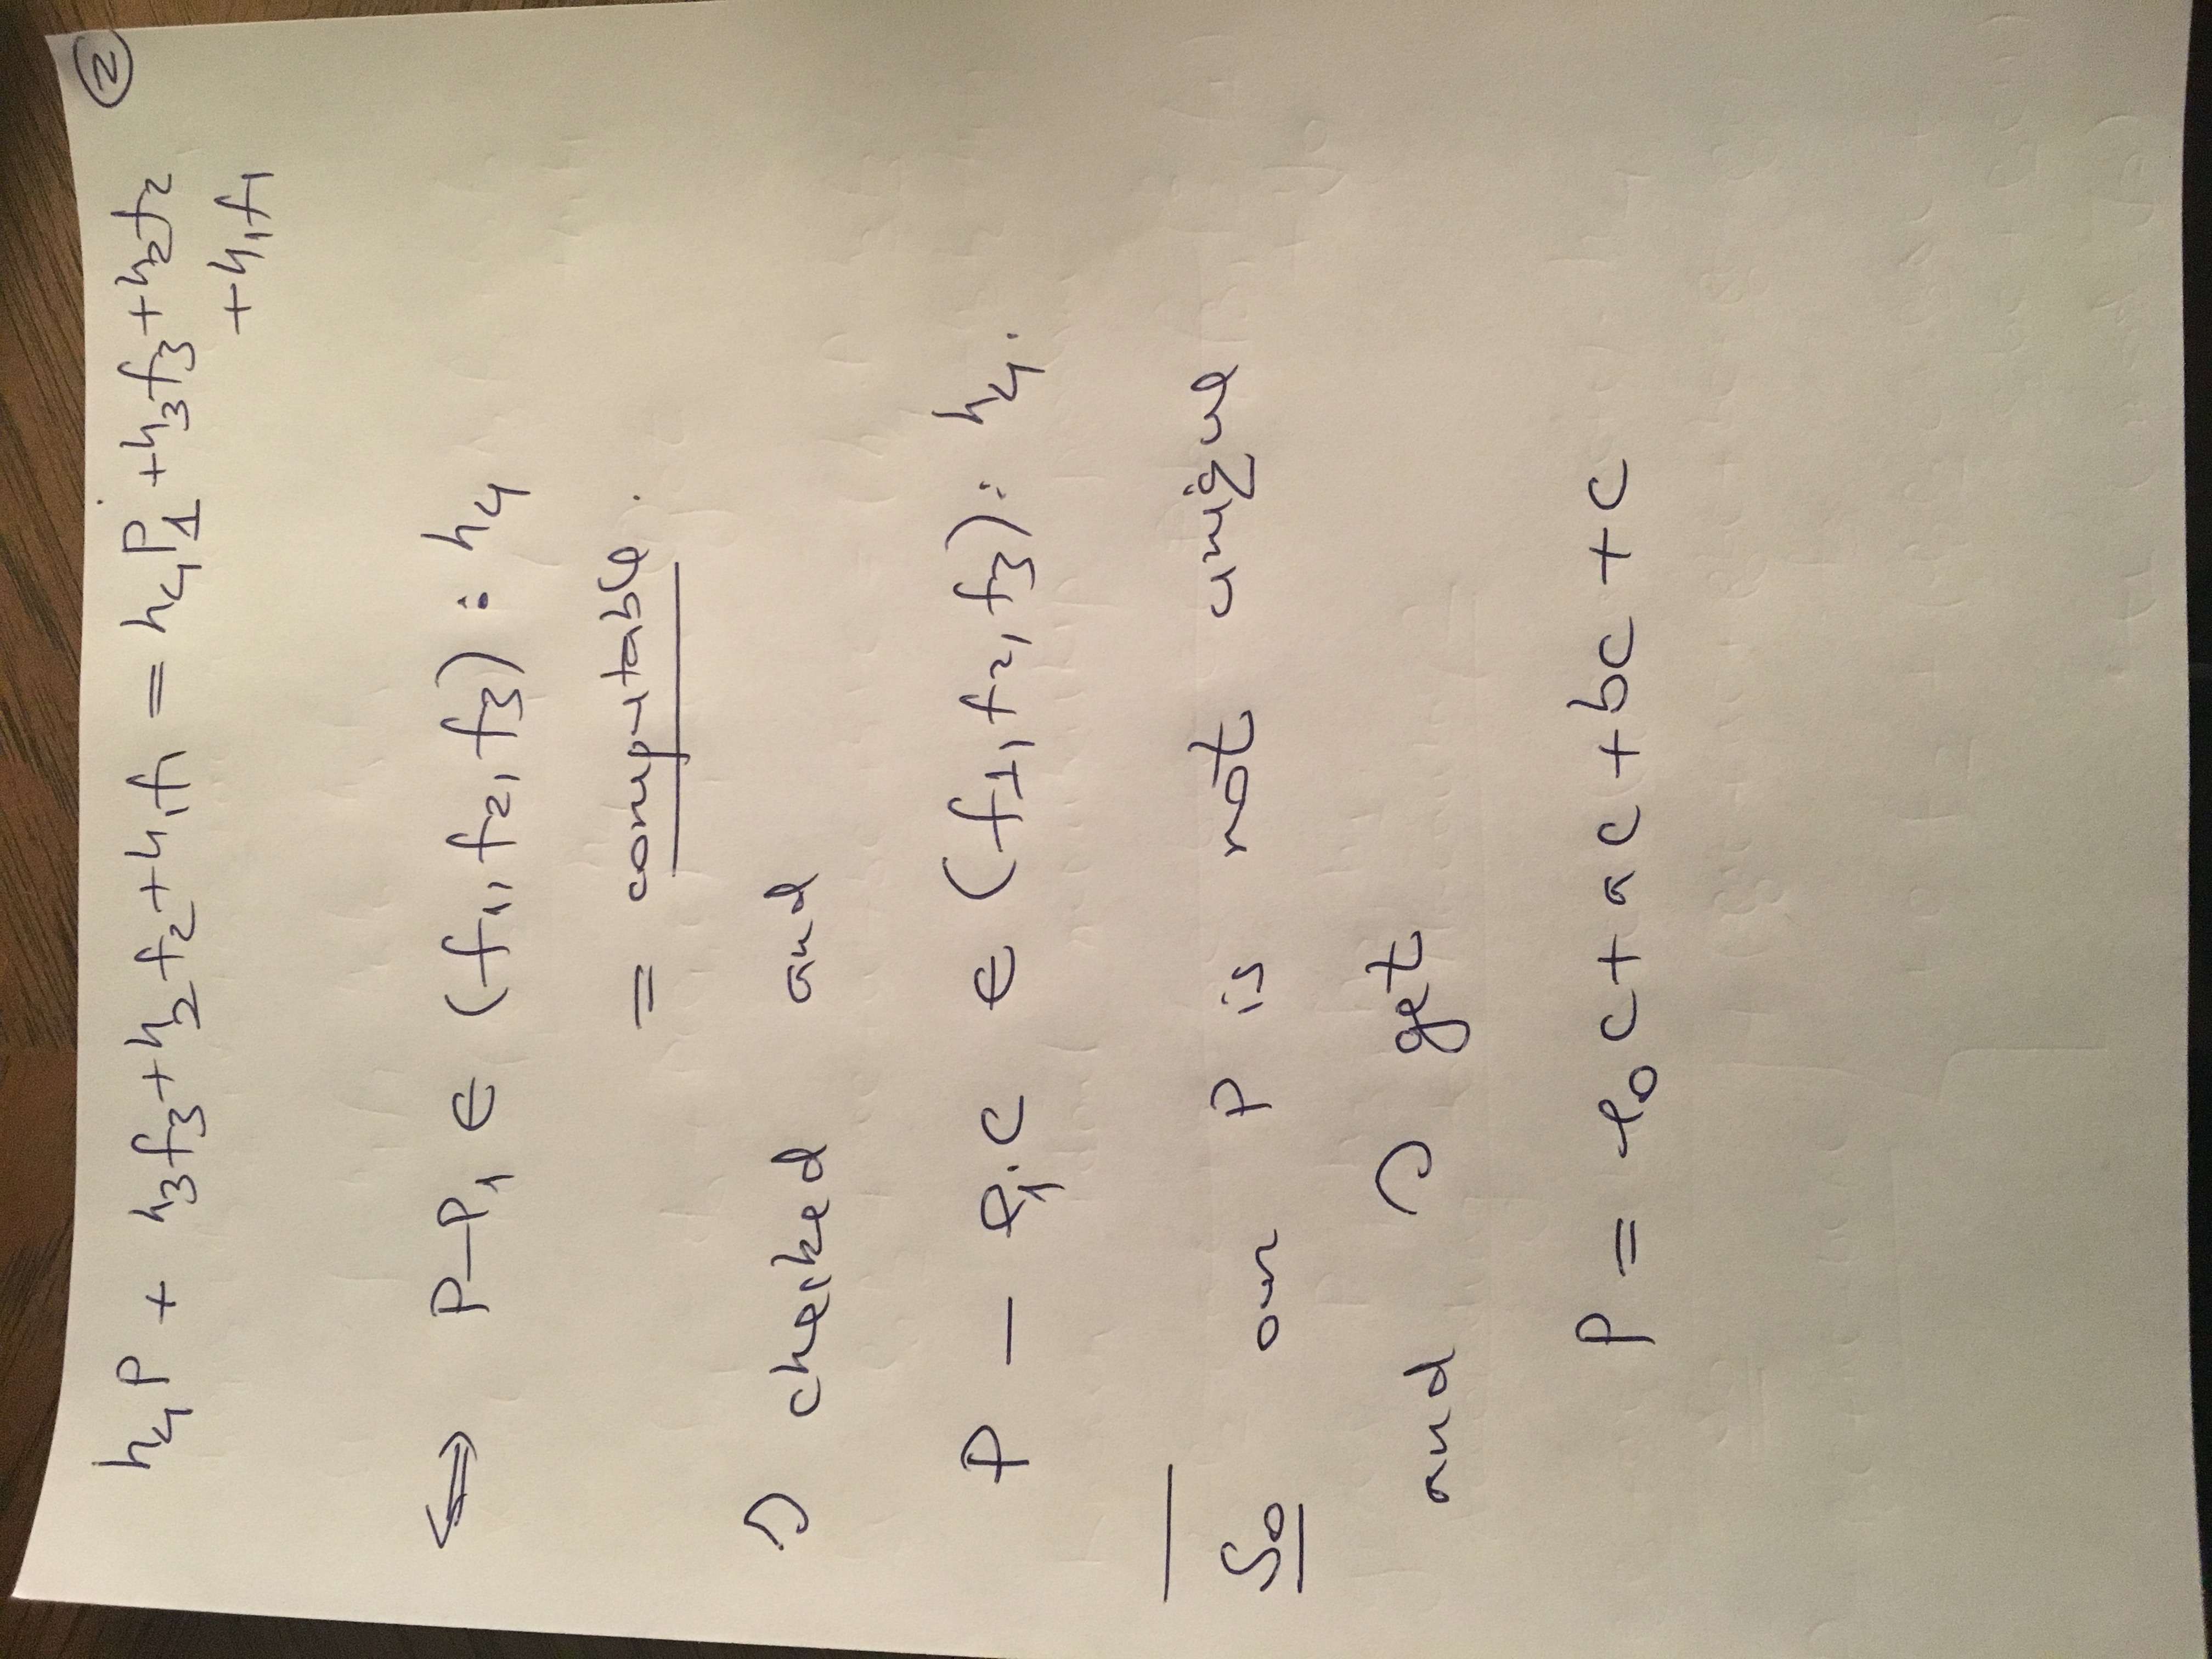 ②
h₄P + h₃f₃+h₂f₂+h₁f₁ = h₄P₁+h₃f₃+h₂f₂
+h₁f₁
⟺ P-P₁ ∈ (f₁, f₂, f₃) : h₄
= computable.
I checked and
P - e₁·c ∈ (f₁, f₂, f₃) : h₄.
So our P is not unique
and I get
P = e₀c+ac+bc+c